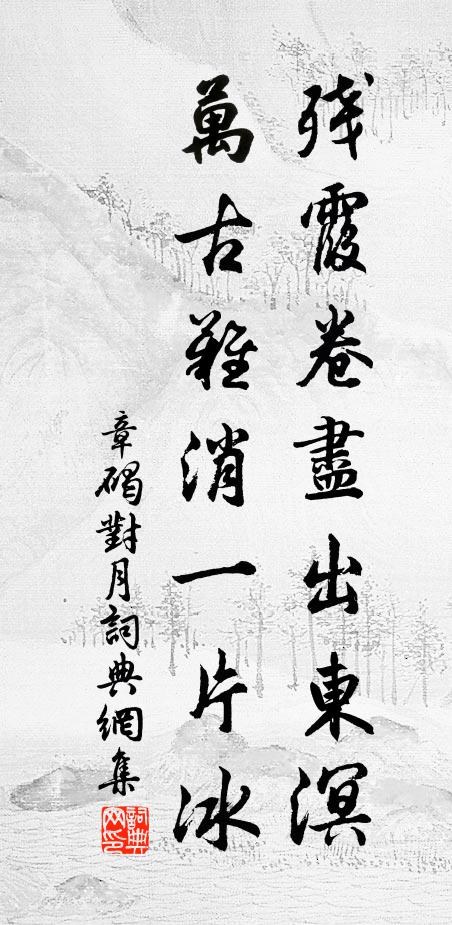 残霞卷盡出東溟
萬古難消一片冰
章碣對月詞典網集
詞典網印